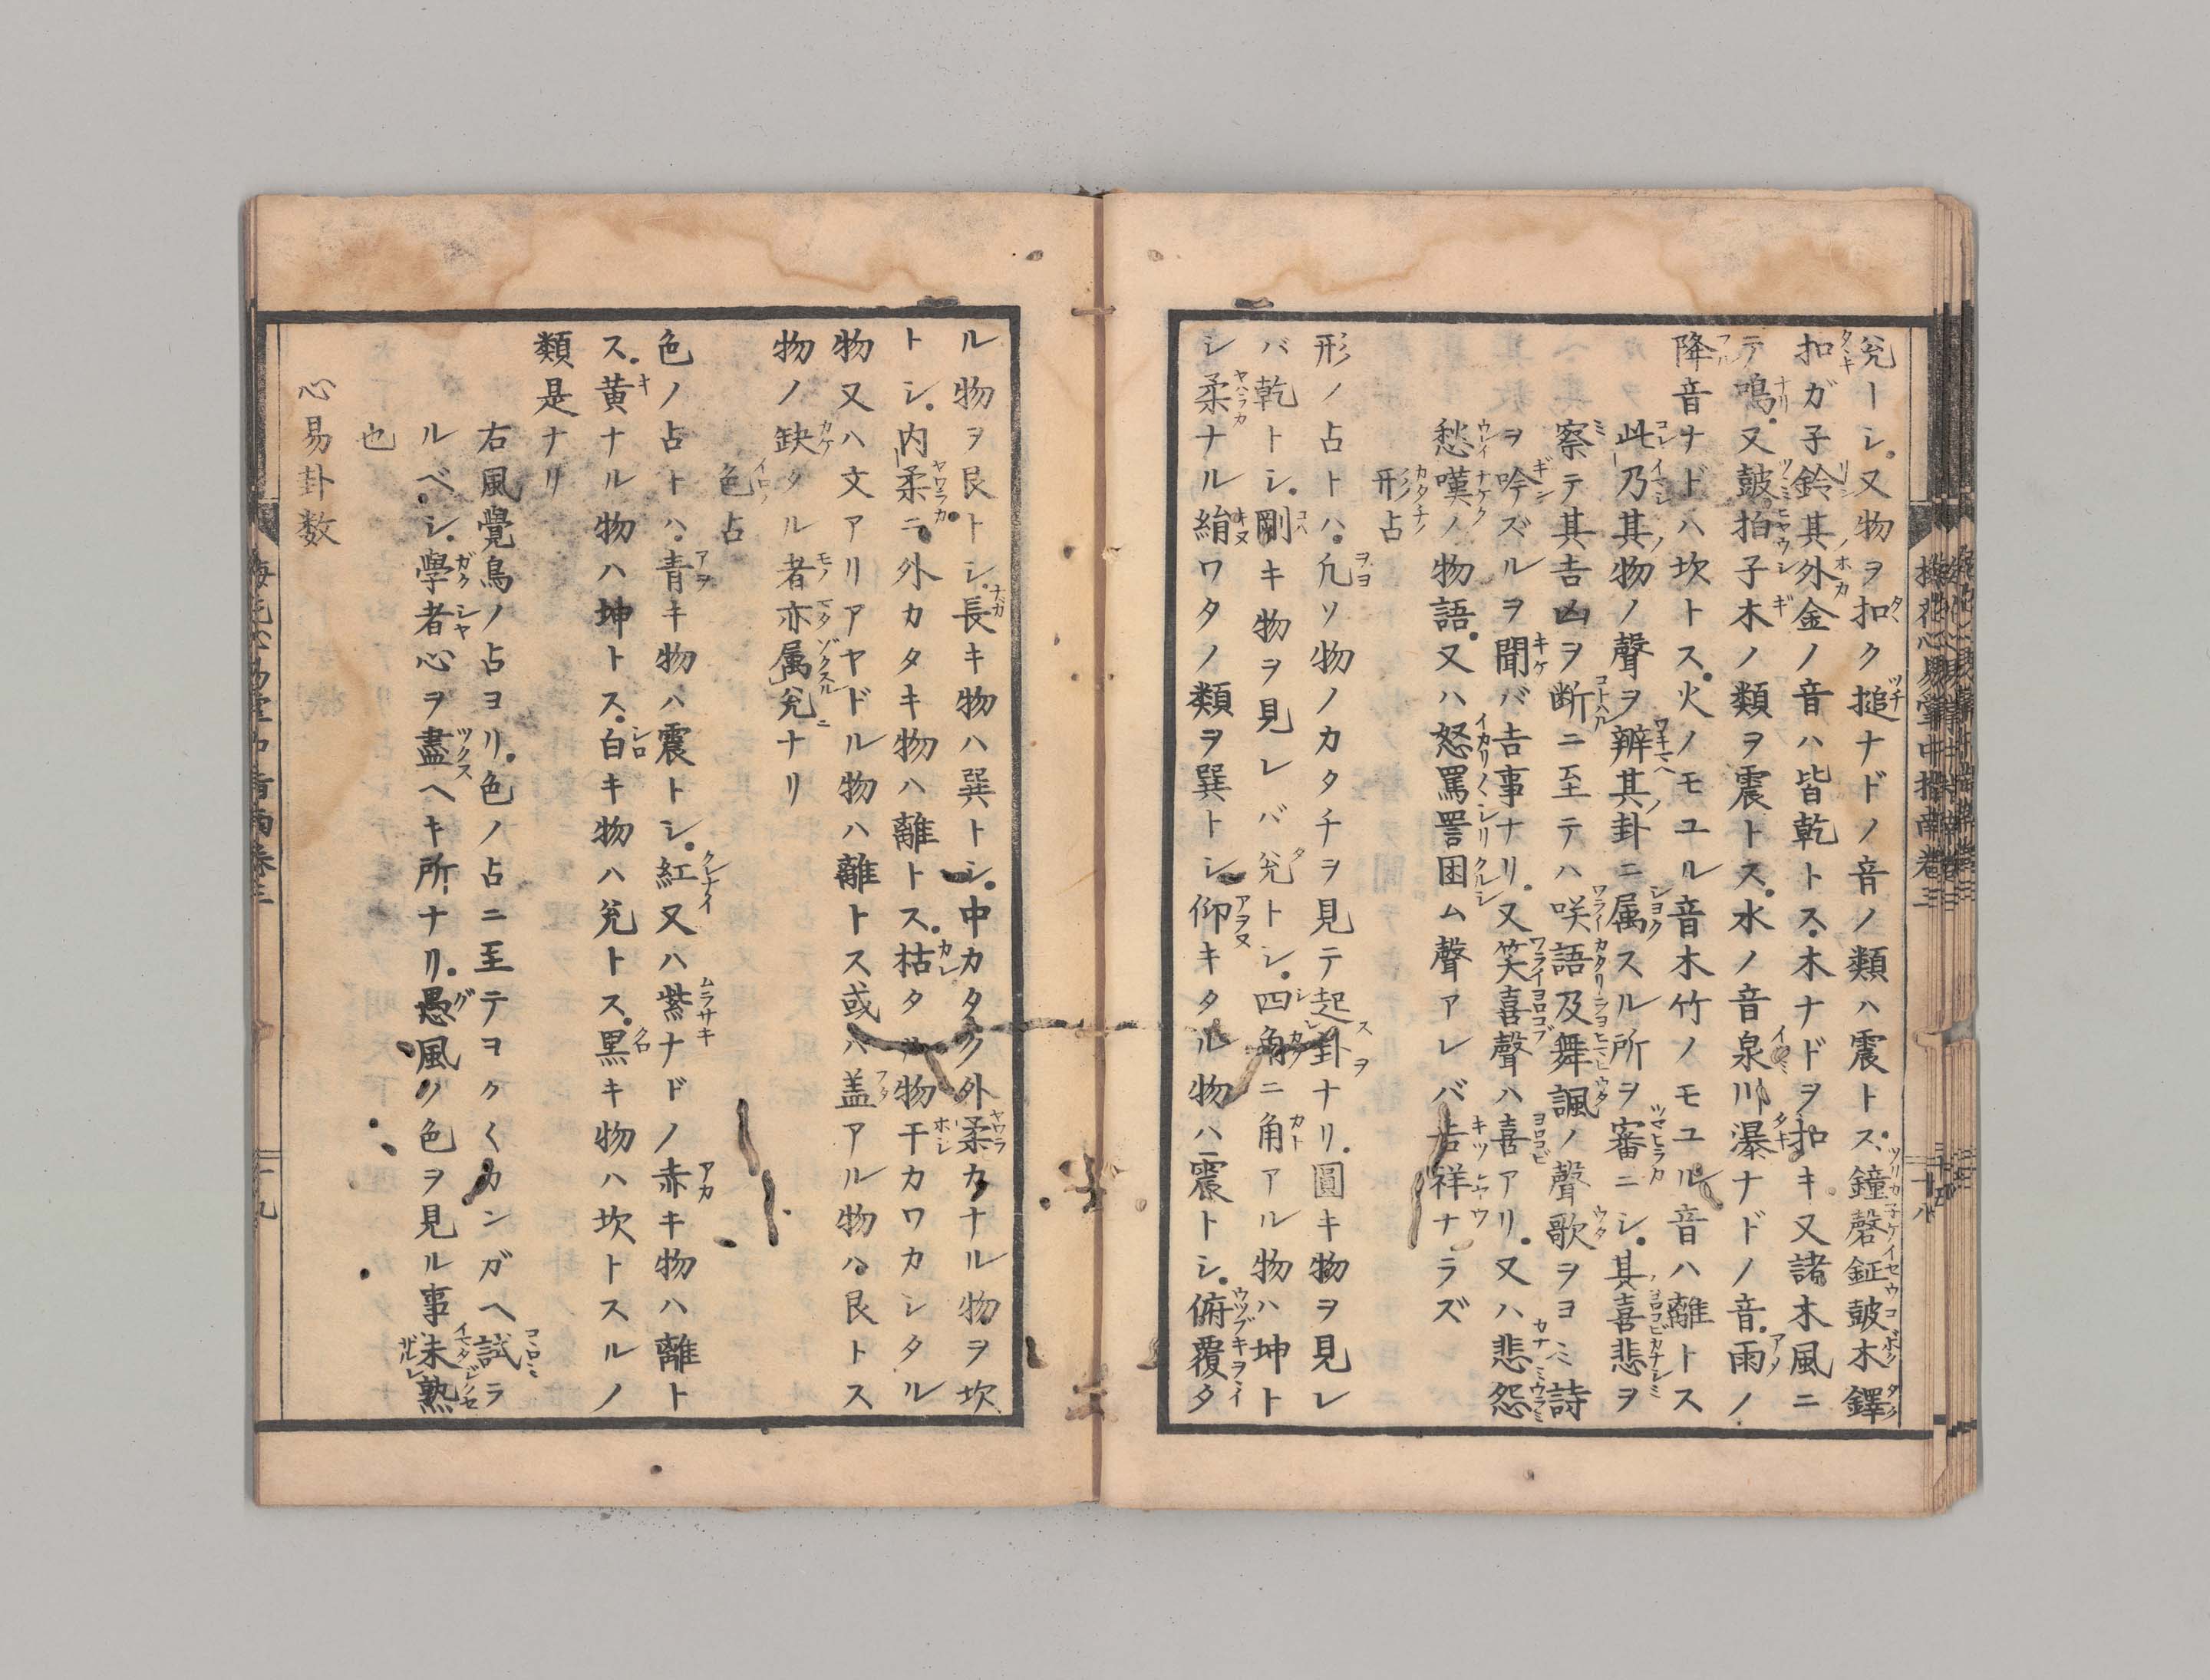 兊ーシ又物ヲ扣ク搥ナドノ音ノ類ハ震トス鐘磬鉦皷木鐸
扣ガ子鈴其外金ノ音ハ皆乾トス木ナドヲ扣キ又諸木風ニ
テ鳴又皷拍子木ノ類ヲ震トス水ノ音泉川瀑ナドノ音雨ノ
降音ナドハ坎トス火ノモユル音木竹ノモユル音ハ離トス
此乃其物ノ聲ヲ辨其卦ニ属スル所ヲ審ニシ其喜悲ヲ
察テ其吉凶ヲ断ニ至テハ咲語及舞諷ノ聲歌ヲヨミ詩
ヲ吟ズルヲ聞バ吉事ナリ又笑喜聲ハ喜アリ又ハ悲怨
愁嘆ノ物語又ハ怒罵詈困ム聲アレバ吉祥ナラズ
形占
形ノ占トハ凢ソ物ノカタチヲ見テ起卦ナリ圓キ物ヲ見レ
バ乾トシ剛キ物ヲ見レバ兊トシ四角ニ角アル物ハ坤ト
シ柔ナル絹ワタノ類ヲ巽トシ仰キタル物ハ震トシ俯覆タ
ル物ヲ艮トシ長キ物ハ巽トシ中カタク外柔カナル物ヲ坎
トシ内柔ニ外カタキ物ハ離トス枯タル物干カワカシタル
物又ハ文アリアヤドル物ハ離トス或ハ盖アル物ハ艮トス
物ノ缺タル者亦属兊ナリ
色占
色ノ占トハ青キ物ハ震トシ紅又ハ紫ナドノ赤キ物ハ離ト
ス黄ナル物ハ坤トス白キ物ハ兊トス黒キ物ハ坎トスルノ
類是ナリ
右風覺鳥ノ占ヨリ色ノ占ニ至テヨクくカンガヘ試ラ
ルベシ學者心ヲ盡ヘキ所ナリ愚風ノ色ヲ見ル事未熟
也
心易卦数